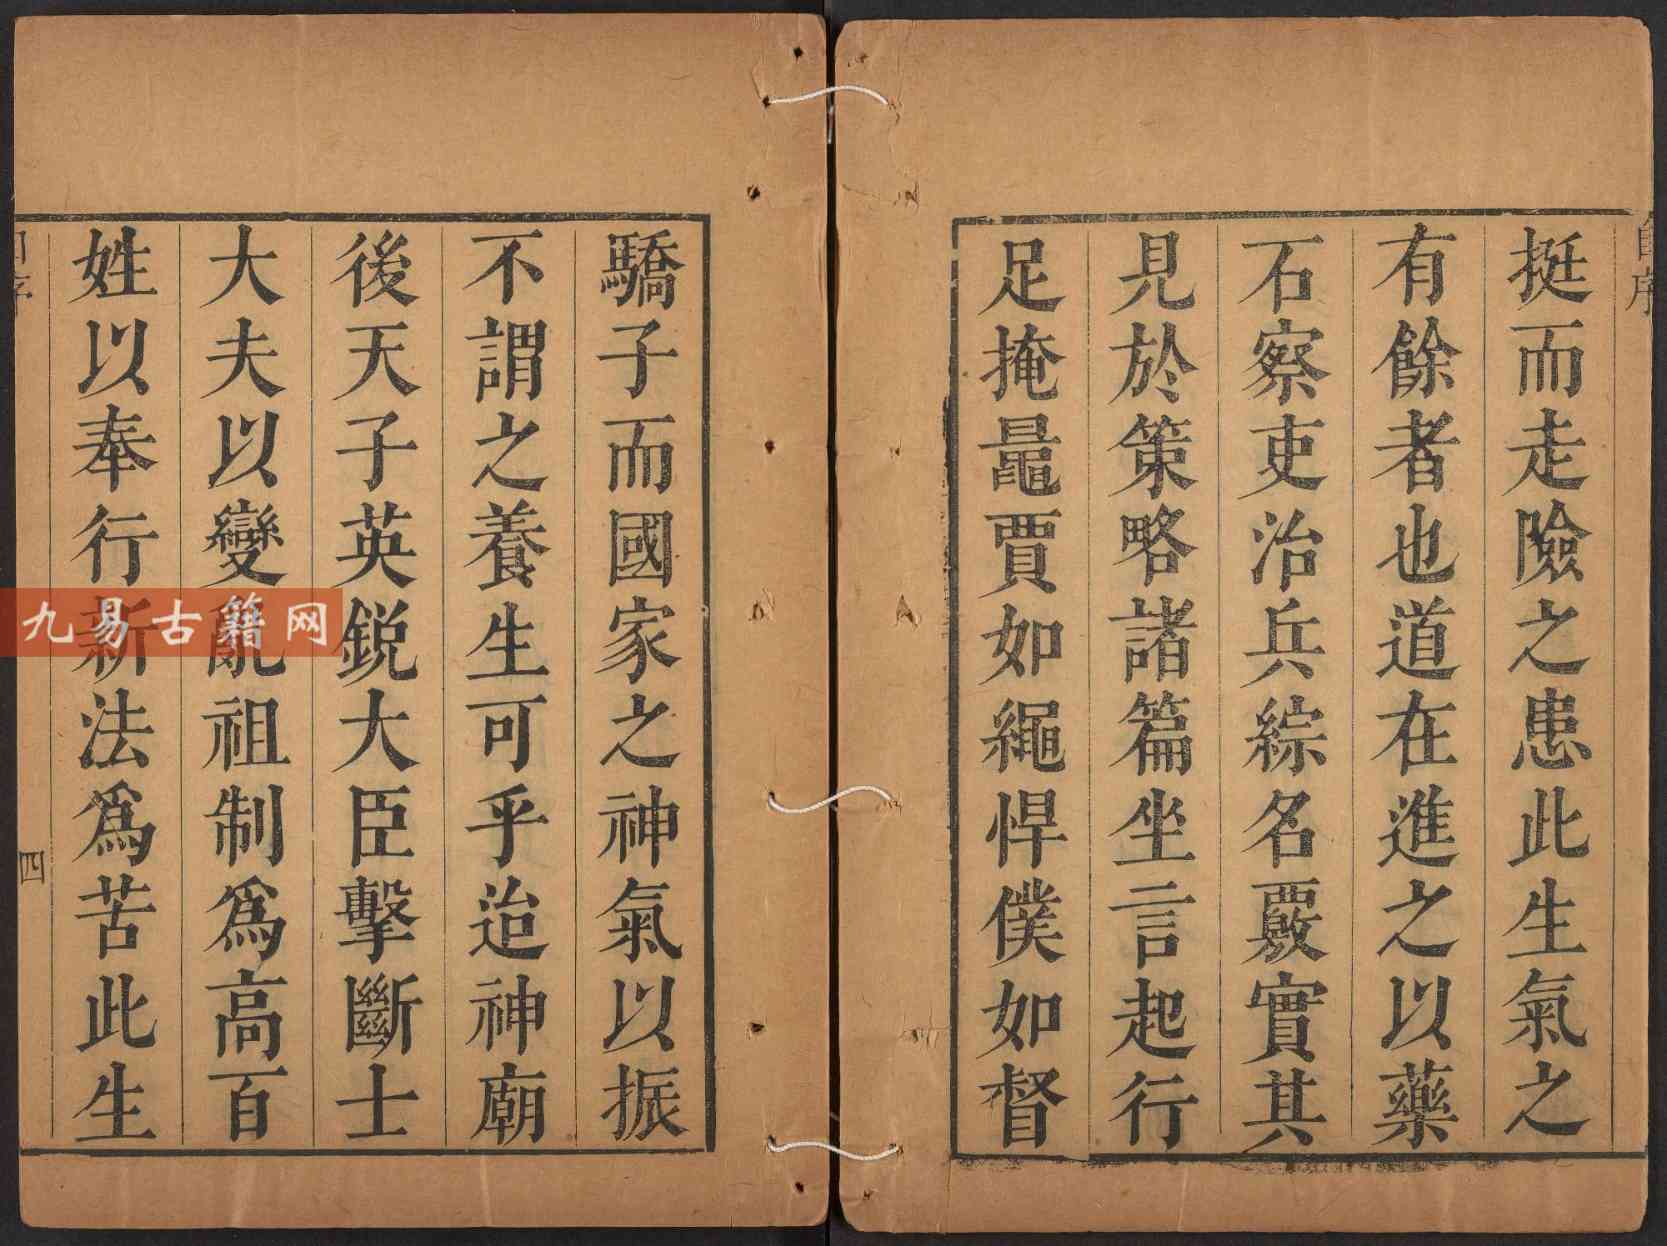 自序
挺而走險之患此生氣之
有餘者也道在進之以藥
石察吏治兵綜名覈實其
見於策略諸篇坐言起行
足掩鼂賈如繩悍僕如督
驕子而國家之神氣以振
不謂之養生可乎迨神廟
後天子英銳大臣擊斷士
大夫以變亂祖制爲高百
姓以奉行新法爲苦此生
四
九易古籍网